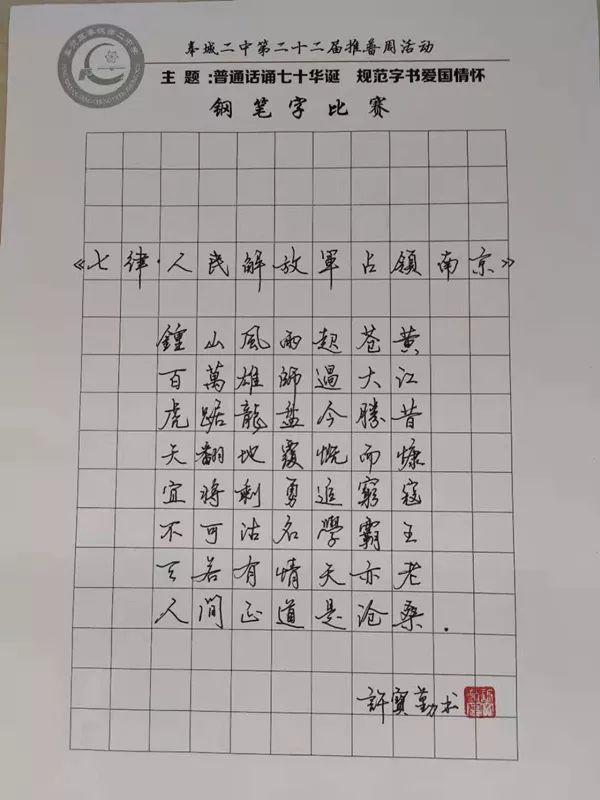 奉城二中第二十二届推普周活动
主 题 :普通话诵七十华诞 规范字书爱国情怀
钢笔字比赛
《七律·人民解放軍占领南京》
鐘山風雨起苍黄
百萬雄師過大江
虎踞龍盘今勝昔
天翻地覆慨而慷
宜将剩勇追窮寇
不可沽名學霸王
天若有情天亦老
人間正道是沧桑.
許寶勤书